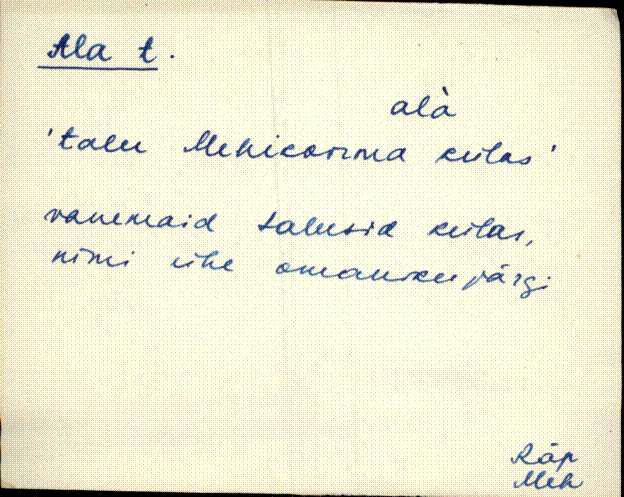 Ala t.
alà
'talu Mehikoorma külas'
vanemaid talusid külas,
nimi ühe omaniku järgi
Räp
Meh